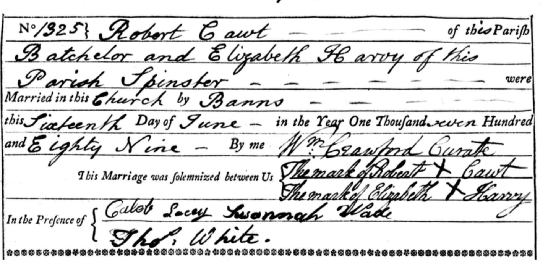 No 1325} Robert Cawt of this Parish
Batchelor and Elizabeth Harvy of this
Parish Spinster were
Married in this Church by Banns
this Sixteenth Day of June in the Year One Thousand seven Hundred
and Eighty Nine By me Wm Crawford Curate
This Marriage was solemnized between Us { The mark of Robert X Cawt
The mark of Elizabeth X Harvy
In the Presence of { Caleb Lacey Susannah Wade
Thos: White.